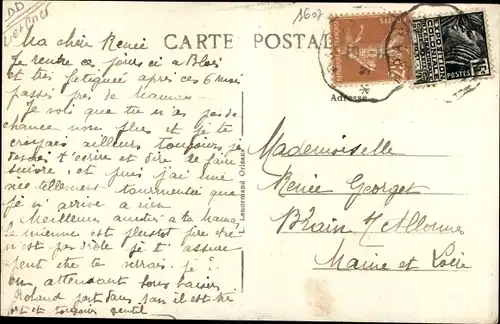 1607
CARTE POSTALE
Ma chère Renée
Je rentre ce jours ci a Blois
et très fatiguée après ces 6 mois
passés près de maman
Je vois que tu n'as pas de
chance non plus et je te
croyais ailleurs toujours je
t'écrire et dire de faire
suivre, et puis j'ai une
vie tellement tourmentée que
je n'arrive a rien
Meilleures amitiés a ta maman
la mienne est plustot
n'est pas drôle je t'assure
peut être te verrai je ?
en attendant bons baisers
Roland part dans 1 an il est très
et toujours gentil
Lenormand Orléans
Adresse
POSTES
Mademoiselle
Renée Georget
Brain s/ Allonnes
Maine et Loire